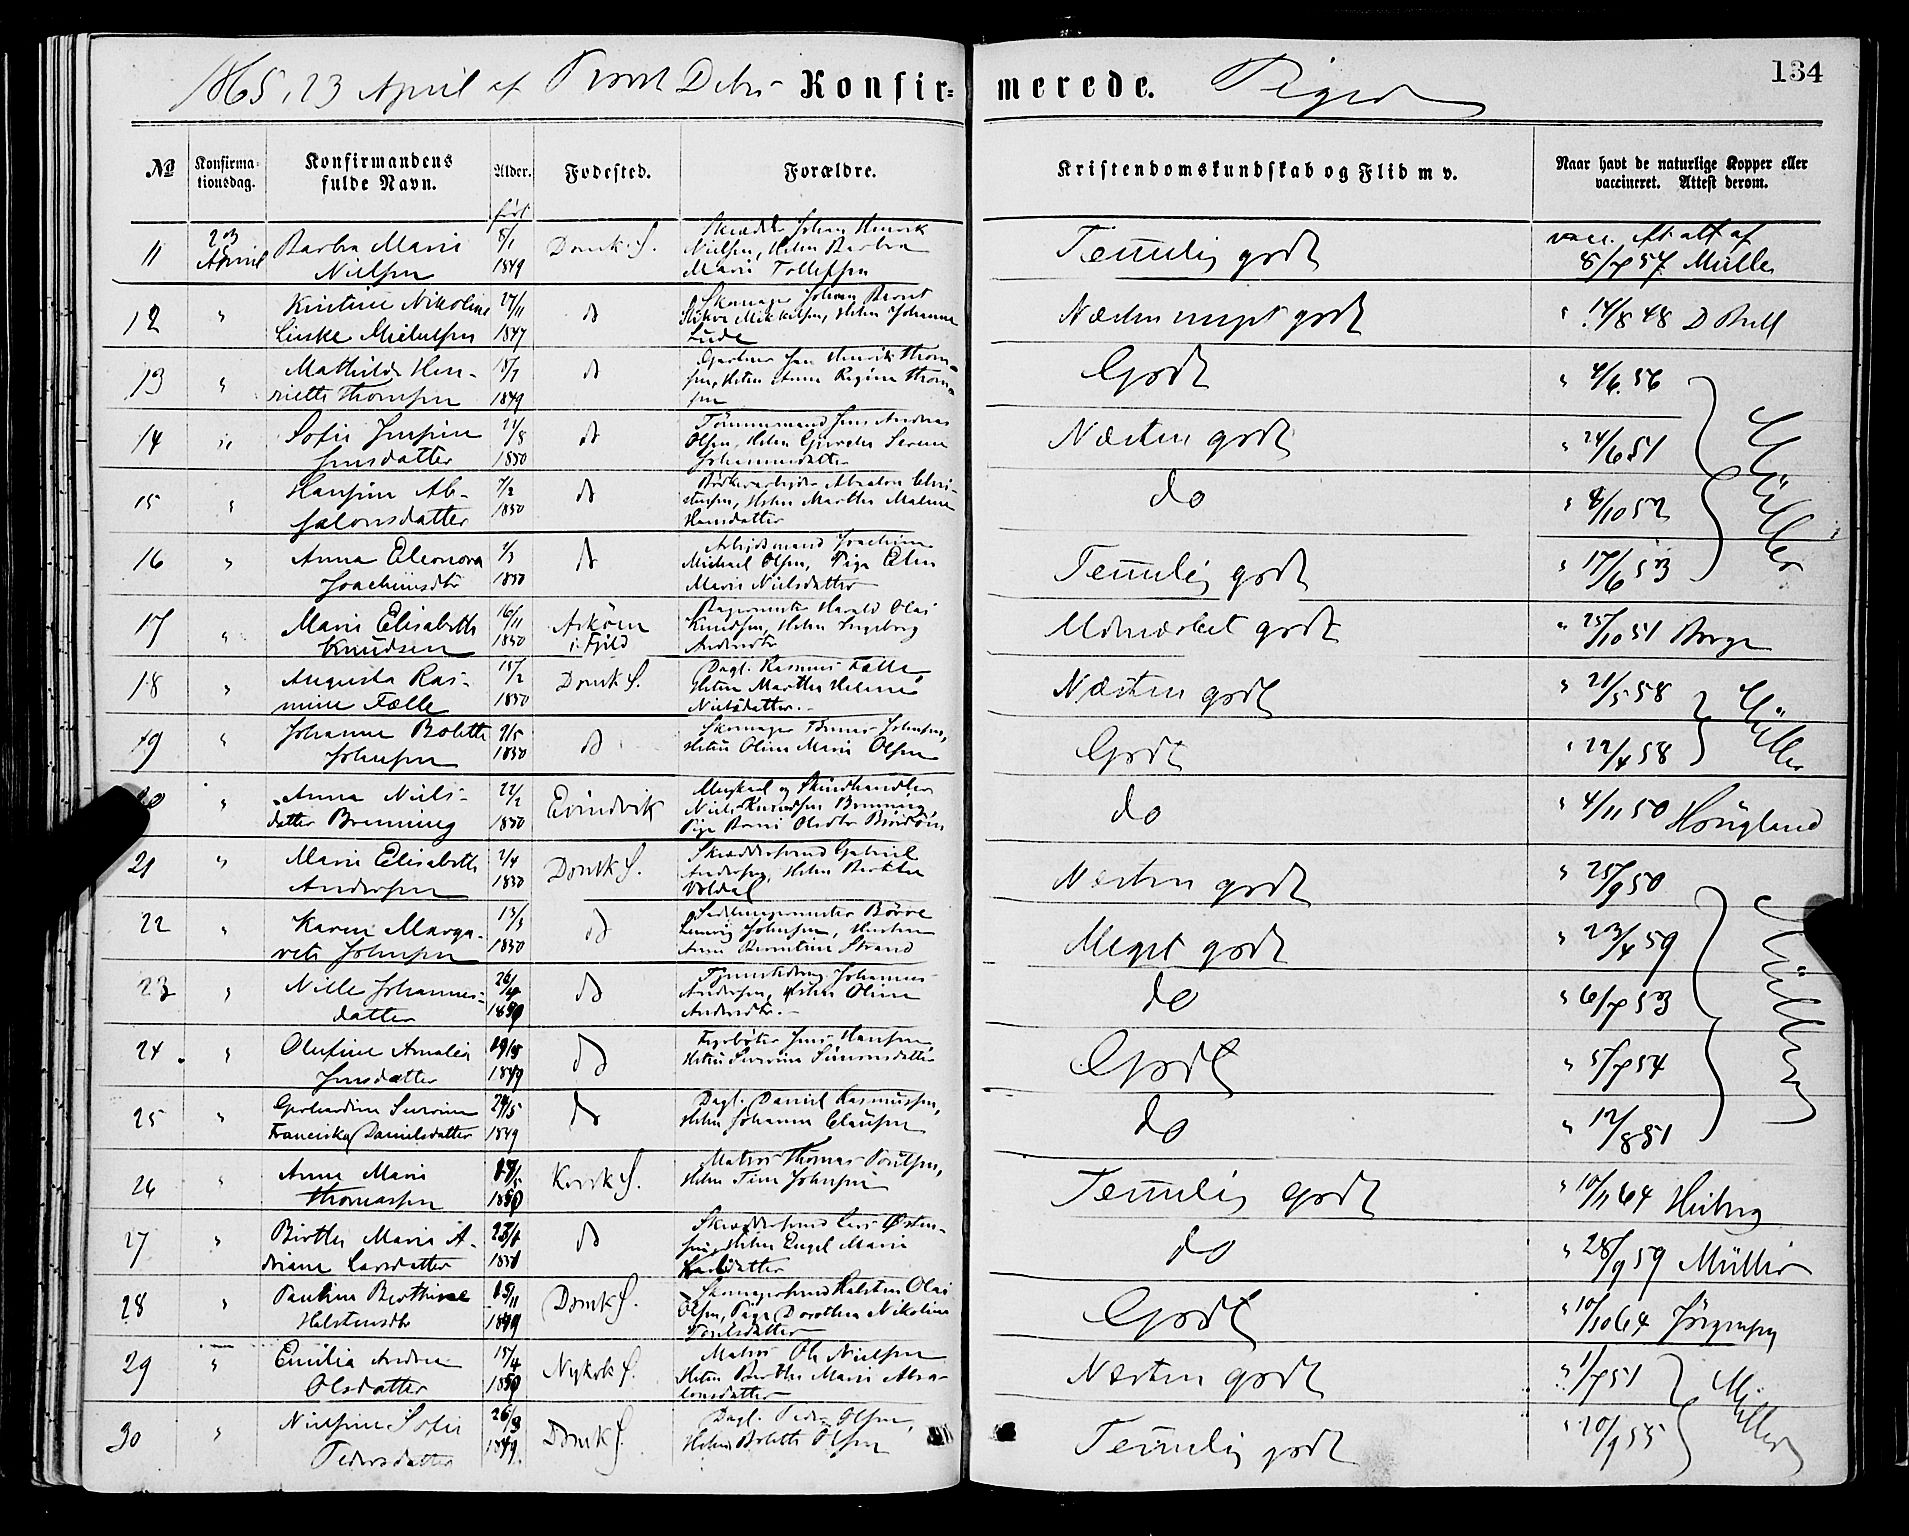 1865, 23 April af Provst Konfirmerede. Piger
134
№ Konfirmationsdag. Konfirmandens fulde Navn. Alder. Fødested. Forældre. Kristendomskundskab og Flid m v. Naar havt de naturlige Kopper eller vaccineret. Attest derom.
født
11 23 April Barbra Marie Nielsen 8/1 1849 Domk S. Skrædder Johan Henrik Nielsen, Helen Barbra Marie Tollefsen Temlig godt vacc. att af 8/7 57 Müller
12 " Kristine Nikoline 27/11 1847 do Skomager Johan Berent Mikkelsen, Johanne Næsten meget godt " 14/8 48 D Bull
13 " Mathilde Henriette Thomsen 1849 do Jan Henrik Thomsen, Anne Regine Thomsen Godt " 4/6 56
14 " Sofie Jensine Jensdatter 21/8 1850 do Tømmermand Jens Andreas Olsen, Serine Johannesdatter Næsten godt " 24/6 51
15 " Hansine Absalonsdatter 7/2 1850 do Absalon Christensen, Marthe Malene Hansdatter do " 8/10 52
16 " Anna Eleonora Joachimsdtr 2/3 1850 do Arbeidsmand Joachim Michael Olsen, Pige Elen Marie Nielsdatter Temlig godt " 17/6 53
Müller
17 " Marie Elisabeth Knudsen 16/11 1850 Askøen i Fjeld Bagermester Harald Olai Knudsen, Ingeborg Andersdtr Udmærket godt " 25/10 51
18 " Augusta Rasmine Fælle 15/2 1850 Domk S. Dagl. Rasmus Fælle, Marthe Helene Nielsdatter. Næsten godt " 21/5 58
19 " Johanne Bolette Johnsen 9/5 1850 do Skomager Johnsen, Oline Marie Olsen Godt " 22/4 58
Müller
20 " Anna Nielsdatter Brenning 22/2 1850 Evindvik Skindhandler Niels Knudsen Brenning, Pige do " 4/11 50
21 " Marie Elisabeth Andersen 2/4 1850 Domk S. Skræddersvend Gabriel Andersen, Voldal Næsten godt " 25/9 50
22 " Karen Margarete Johnsen 13/3 1850 do Børre Ludvig Johnsen, Hustru Anne Berentine Strand Meget godt " 23/4 59
23 " Nille Johannesdatter 26/4 1850 do Johannes Andersen, Oline Andersdtr. do " 6/7 53
24 " Olufine Amalia Jensdatter 1849 do Fyrbøter Jens Hansen, Severine Simonsdatter Godt " 5/7 54
25 " Gerhardine Severine Franciska Danielsdatter 24/5 1849 do Dagl. Daniel Rasmussen, Johanne Clausen do " 12/8 51
Müller
26 " Anne Marie Thomassen 1850 Korsk S. Matros Thomas Poulsen, Johnsen Temlig godt " 10/11 64 Heiberg
27 " Birthe Marie Adriane Larsdatter 1850 do Skræddersvend Lars Østensen, Engel Marie Karlsdatter do " 28/9 59 Müller
28 " Pauline Berthine Halstensdtr 15/11 1849 Domk S. Skomagersvend Halsten Olai Olsen, Pige Dorothea Nikoline Poulsdatter Godt " 10/10 64 Jørgensen
29 " Emilia Andrea Olsdatter 15/4 1850 Nykrk S. Matros Ole Nielsen Berthe Marie Absalonsdatter Næsten godt " 1/7 51
30 " Nielsine Sofie Pedersdatter 26/3 1849. Domk S. Dagl. Peder Olsen, Bolette Olsen Temlig godt " 20/9 55
Müller